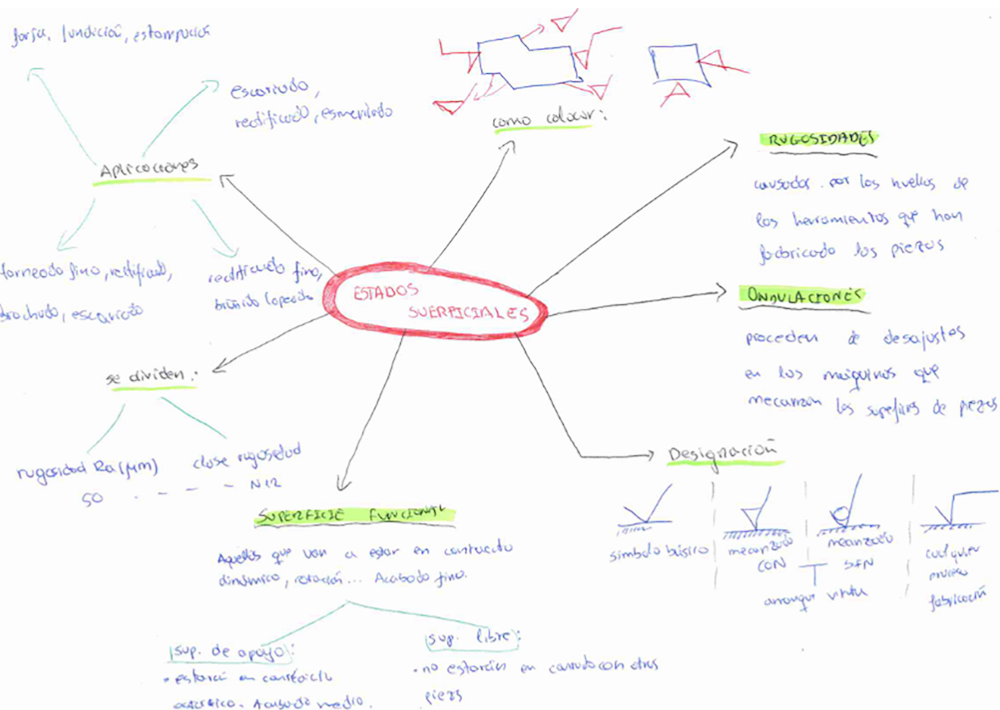 forja, fundición, estampación
escariado,
rectificado, esmerilado
Aplicaciones
torneado fino, rectificado,
brochado, escariado
rectificado fino,
bruñido lapeado
como colocar:
RUGOSIDADES
causadas por las huellas de
las herramientas que han
fabricado las piezas
ESTADOS
SUERFICIALES
ONDULACIONES
proceden de desajustes
en las maiquinas que
mecanizan las de piezas
se dividen:
rugosidad Ra (µm)
50 - - - - N12
clase rugosidad
Designación
simbolo básico
mecanizado
CON
mecanizado
SIN
arranque viruta
cualquier
proceso
fabricación
SUPERFICIE FUNCIONAL
Aquellas que van a estar en contacto
dinámico, rotación... Acabado fino.
sup. de apoyo:
• estarán en contacto
Acabado medio.
sup. libre:
• no estarán en con otras
piezas